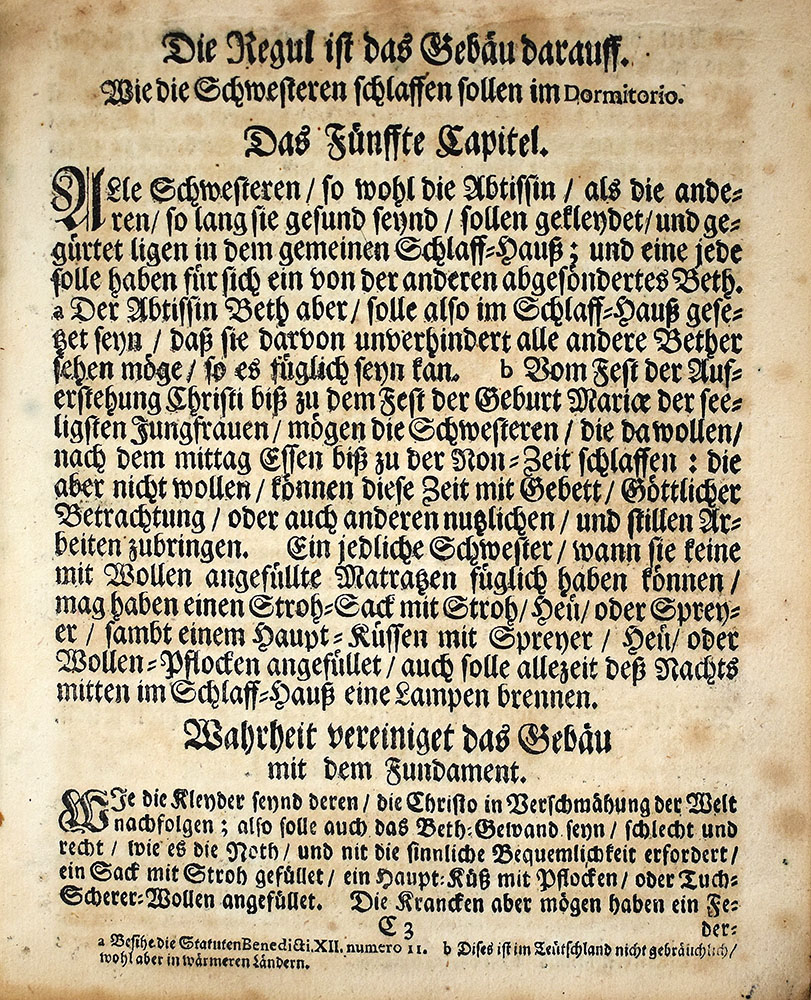 Die Regul ist das Gebäu darauff.
Wie die Schwesteren schlaffen sollen im Dormitorio.
Das Fünffte Capitel.
ALle Schwesteren / so wohl die Abtissin / als die ande⸗
ren / so lang sie gesund seynd / sollen gekleydet / und ge⸗
gürtet ligen in dem gemeinen Schlaff⸗Hauß ; und eine jede
solle haben für sich ein von der anderen abgesöndertes Beth.
a Der Abtissin Beth aber / solle also im Schlaff⸗Hauß gese⸗
tzet seyn / daß sie darvon unverhindert alle andere Bether
sehen möge / so es füglich seyn kan. b Vom Fest der Auf⸗
erstehung Christi biß zu dem Fest der Geburt Mariæ der see⸗
ligsten Jungfrauen / mögen die Schwesteren / die da wollen /
nach dem mittag Essen biß zu der Non⸗Zeit schlaffen : die
aber nicht wollen / können diese Zeit mit Gebett / Göttlicher
Betrachtung / oder auch anderen nutzlichen / und stillen Ar⸗
beiten zubringen. Ein jedliche Schwester / wann sie keine
mit Wollen angefüllte Matratzen füglich haben können /
mag haben einen Stroh⸗Sack mit Stroh / Heü / oder Sprey⸗
er / sambt einem Haupt⸗Küssen mit Spreyer / Heü / oder
Wollen⸗Pflocken angefüllet / auch solle allezeit deß Nachts
mitten im Schlaff⸗Hauß eine Lampen brennen.
Wahrheit vereiniget das Gebäu
mit dem Fundament.
WIe die Kleyder seynd deren / die Christo in Verschmähung der Welt
nachfolgen ; also solle auch das Beth⸗Gewand seyn / schlecht und
recht / wie es die Noth / und nit die sinnliche Bequemlichkeit erfordert /
ein Sack mit Stroh gefüllet / ein Haupt⸗Küß mit Pflocken / oder Tuch⸗
Scherer⸗Wollen angefüllet. Die Krancken aber mögen haben ein Fe⸗
C 3 der⸗
a Besihe die Statuten Benedicti. XII. numero 11. b Dises ist im Teütschland nicht gebräuchlich /
wohl aber in wärmeren Ländern.